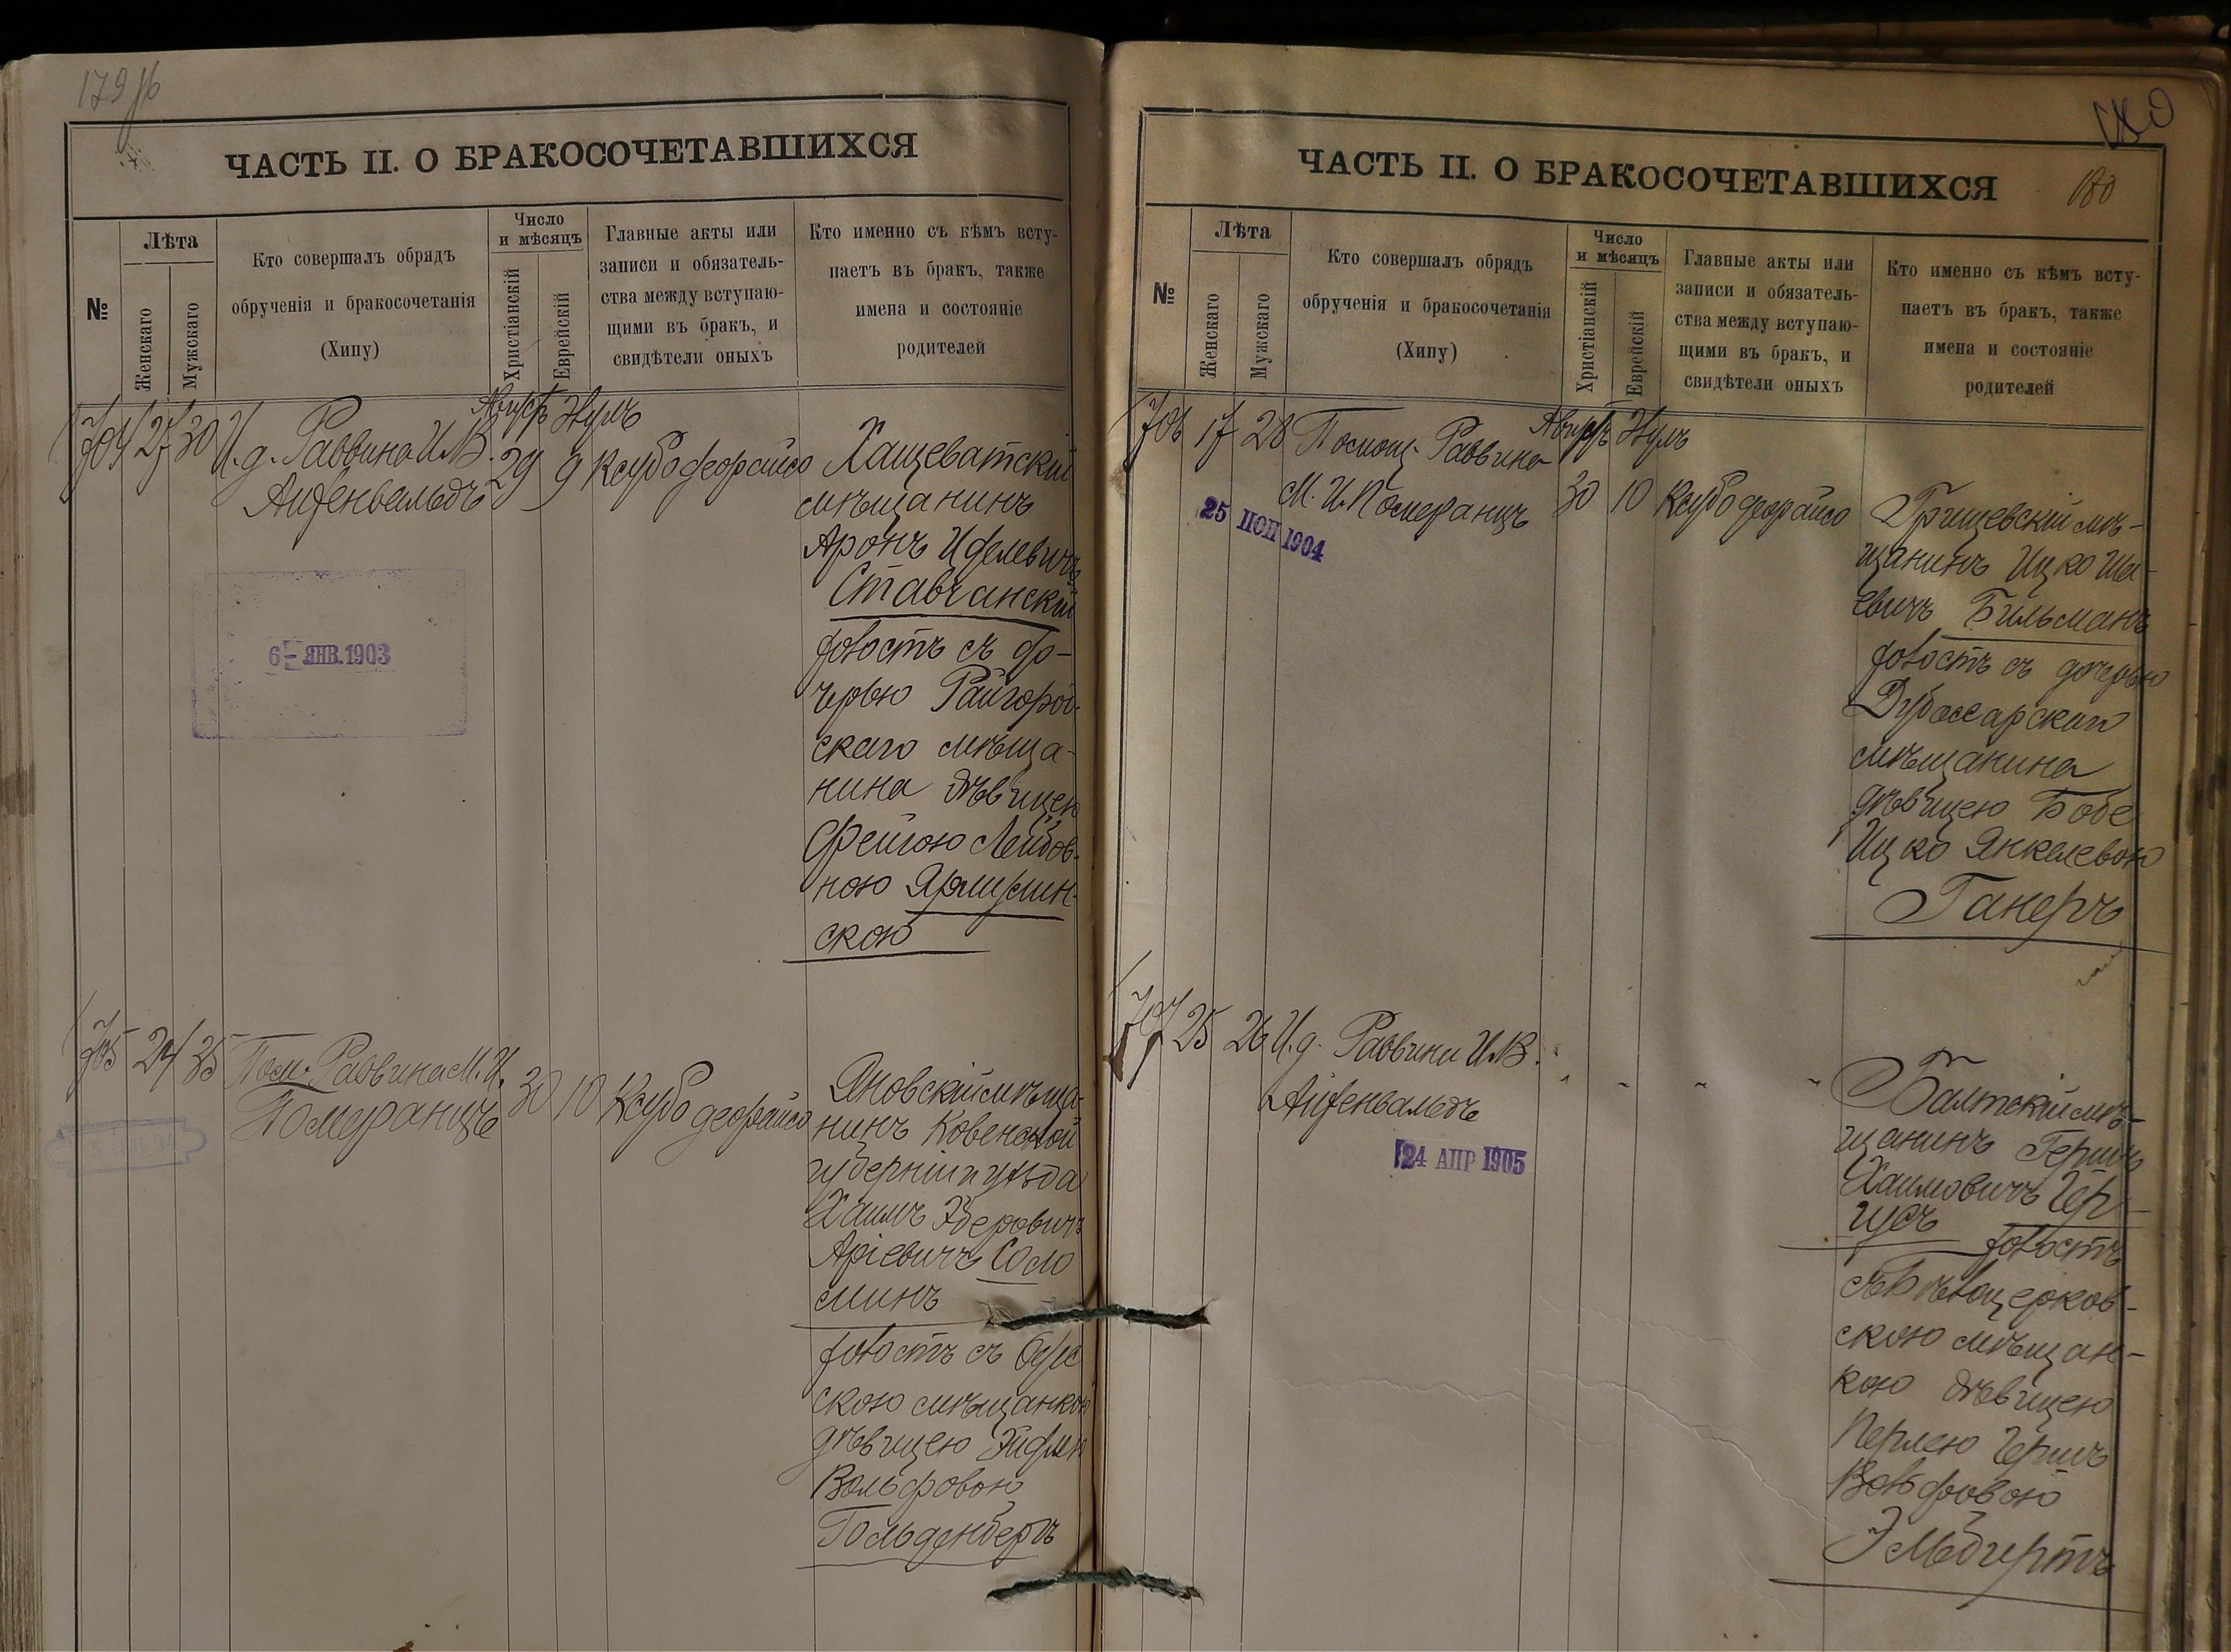 179 об
ЧАСТЬ II. О БРАКОСОЧЕТАВШИХСЯ
№
Лѣта
Женскаго
Мужскаго
Кто совершалъ обрядъ
обрученія и бракосочетанія
(Хипу)
Число
и мѣсяцъ
Христіанскій
Еврейскій
Главные акты или
записи и обязатель-
ства между вступаю-
щими въ бракъ, и
свидѣтели оныхъ
Кто именно съ кѣмъ всту-
паетъ въ бракъ, также
имена и состояніе
родителей
704 27 30 И.д. Раввина И.В.
Айзенвальдъ
Августъ Элулъ
29 9 Ксубо деорайсо
6 - ЯНВ. 1903
Хащеватскій
мѣщанинъ
Аронъ
Ставчанскій
холостъ съ до-
черью Райгород-
скаго мѣща-
нина дѣвицею
Фейгою Лейбов-
ною
скою
705 24 35 Пом. Раввина М.И.
Померанцъ
30 10 Ксубо деорайсо
Яновскій мѣща-
нинъ Ковенской
губерніи и уѣзда
Хаимъ
Аріевичъ Соло
минъ
холостъ съ Одес
скою мѣщанкою
дѣвицею
Вольфовою
Гольденбергъ
180
ЧАСТЬ II. О БРАКОСОЧЕТАВШИХСЯ
180
№
Лѣта
Женскаго
Мужскаго
Кто совершалъ обрядъ
обрученія и бракосочетанія
(Хипу)
Число
и мѣсяцъ
Христіанскій
Еврейскій
Главные акты или
записи и обязатель-
ства между вступаю-
щими въ бракъ, и
свидѣтели оныхъ
Кто именно съ кѣмъ всту-
паетъ въ бракъ, также
имена и состояніе
родителей
706 17 28 Помощ. Раввина
М. И. Померанцъ
Августъ Элулъ
30 10 Ксубо деорайсо
25 1904
мѣ-
щанинъ Ицко Ша-
евичъ Бильманъ
холостъ съ дочерью
Дубоссарскаго
мѣщанина
дѣвицею Бобе
Ицко Янкелевою
Ганеръ
707 25 26 И.д. Раввина И.В.
Айзенвальдъ
" " " "
24 АПР 1905
Балтскій мѣ-
щанинъ Гершъ
Хаимовичъ Гер-
церъ холостъ
съ Бѣлоцерков-
скою мѣщан-
кою дѣвицею
Перлею Гершъ
Вольфовою